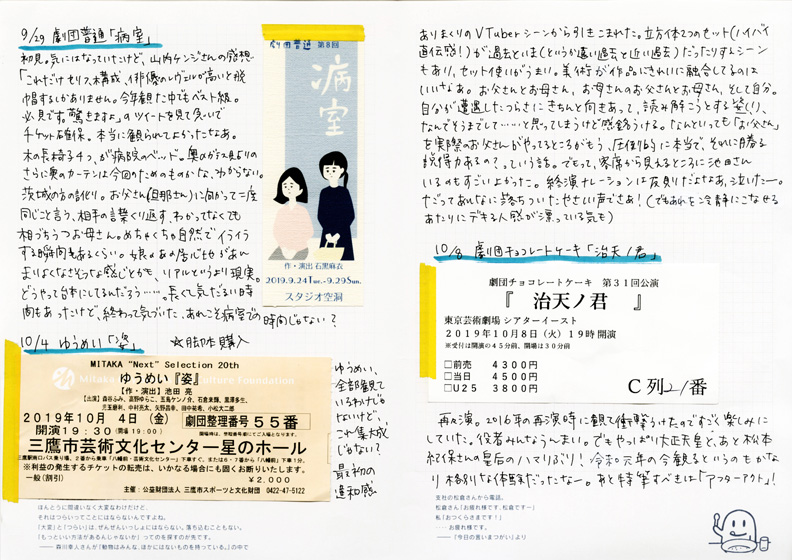 9/29 劇団普通「病室」
初見。気にはなっていたけど、山内ケンジさんの感想
「これだけセリフ、構成、俳優のレヴェルが高いと脱
帽するしかありません。今年観た中でもベスト級。
必見です。驚きますよ」のツイートを見て急いで
チケット確保。本当に観られてよかったなあ。
木の長椅子4つ、が病院のベッド。
さらに奥のカーテンは今回のためのものかな、わからない。
茨城の方の訛り。お父さん(旦那さん)に向かって二度
同じこと言う、相手の言葉くり返す、わかってなくても
相づちうつお母さん。めちゃくちゃ自然でイライラ
する瞬間もあるくらい。
まりよくなさそうな感じとかも、リアルというより現実。
どうやって台本にしてるんだろう……。長くて気だるい時
間もあったけど、終わって気づいた、あれこそ病室での時間じゃない?
劇団普通 第8回
病室
作・演出 石黒麻衣
2019.9.24Tue.-9.29Sun.
スタジオ空洞
10/4 ゆうめい「姿」 ☆脚本購入
MITAKA "Next" Selection 20th
ゆうめい『姿』
【作・演出】池田 亮
2019年10月 4日(金)
開演19:30 (開場19:00)
劇団整理番号 55番
三鷹市芸術文化センター星のホール
※利益の発生するチケットの転売は、いかなる場合にも固くお断りいたします。
一般(割引) ¥2,000
主催:公益財団法人 三鷹市スポーツと文化財団 0422-47-5122
ゆうめい、
全部観て
いるわけじゃ
ないけど、
これ集大成
じゃない?
最初の
違和感、
ほんとうに間違いなく大変なわけだけど、
それはつらいってことにはならないんですよね。
「大変」と「つらい」は、ぜんぜんいっしょにはならない。落ち込むこともない。
「もっといい方法があるんじゃないか」ってのを探すのが先です。
—— 森川幸人さんが『動物はみんな、ほかにはないものを持っている。』の中で
ありまくりのVTuberシーンから引きこまれた。立方体2つのセット(ハイバイ
直伝感!)が過去といま(というか遠い過去と近い過去)だったりするシーン
もあり、セット使いがうまい。美術が作品にきれいに融合してるのは
いいなあ。お父さんとお母さん、お母さんのお父さんとお母さん、そして自分。
自分が遭遇したつらさにきちんと向きあって、読み解こうとする姿(!)、
なんでそうまでして……と思ってしまうけど感銘うける。なんといっても「お父さん」
を実際のお父さんがやってるところがもう、圧倒的に本当で、それに勝る
説得力あるの?っていう話。でもって、客席から見えるところに池田さん
いるのもすごいよかった。終演ナレーションは反則だよなあ、泣いたー。
だってあんなに落ちついたやさしい声でさ!(でもあれを冷静にこなせる
あたりにデキる人感が漂っている気も)
10/8 劇団チョコレートケーキ「治天ノ君」
劇団チョコレートケーキ 第31回公演
『 治天ノ君 』
東京芸術劇場 シアターイースト
2019年10月8日(火)19時開演
※受付は開演の45分前、開場は30分前
□前売 4300円
□当日 4500円
□U25 3800円
C列21番
再々演。2016年の再演時に観て衝撃うけたのですごく楽しみに
していた。役者みんなうんまい。でもやっぱり大正天皇と、あと松本
紀保さんの皇后のハマりぶり! 令和元年の今観るというのもかな
り格別な体験だったなー。あと特筆すべきは「アフターアクト」!
支社の松倉さんから電話。
松倉さん「お疲れ様です、松倉ですー」
私「おつくらさまです!」
……お疲れ様です。
——「今日の言いまつがい」より